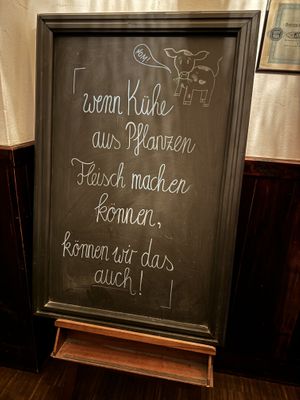 „wenn Kühe
aus Pflanzen
Fleisch machen
können,
können wir das
auch!